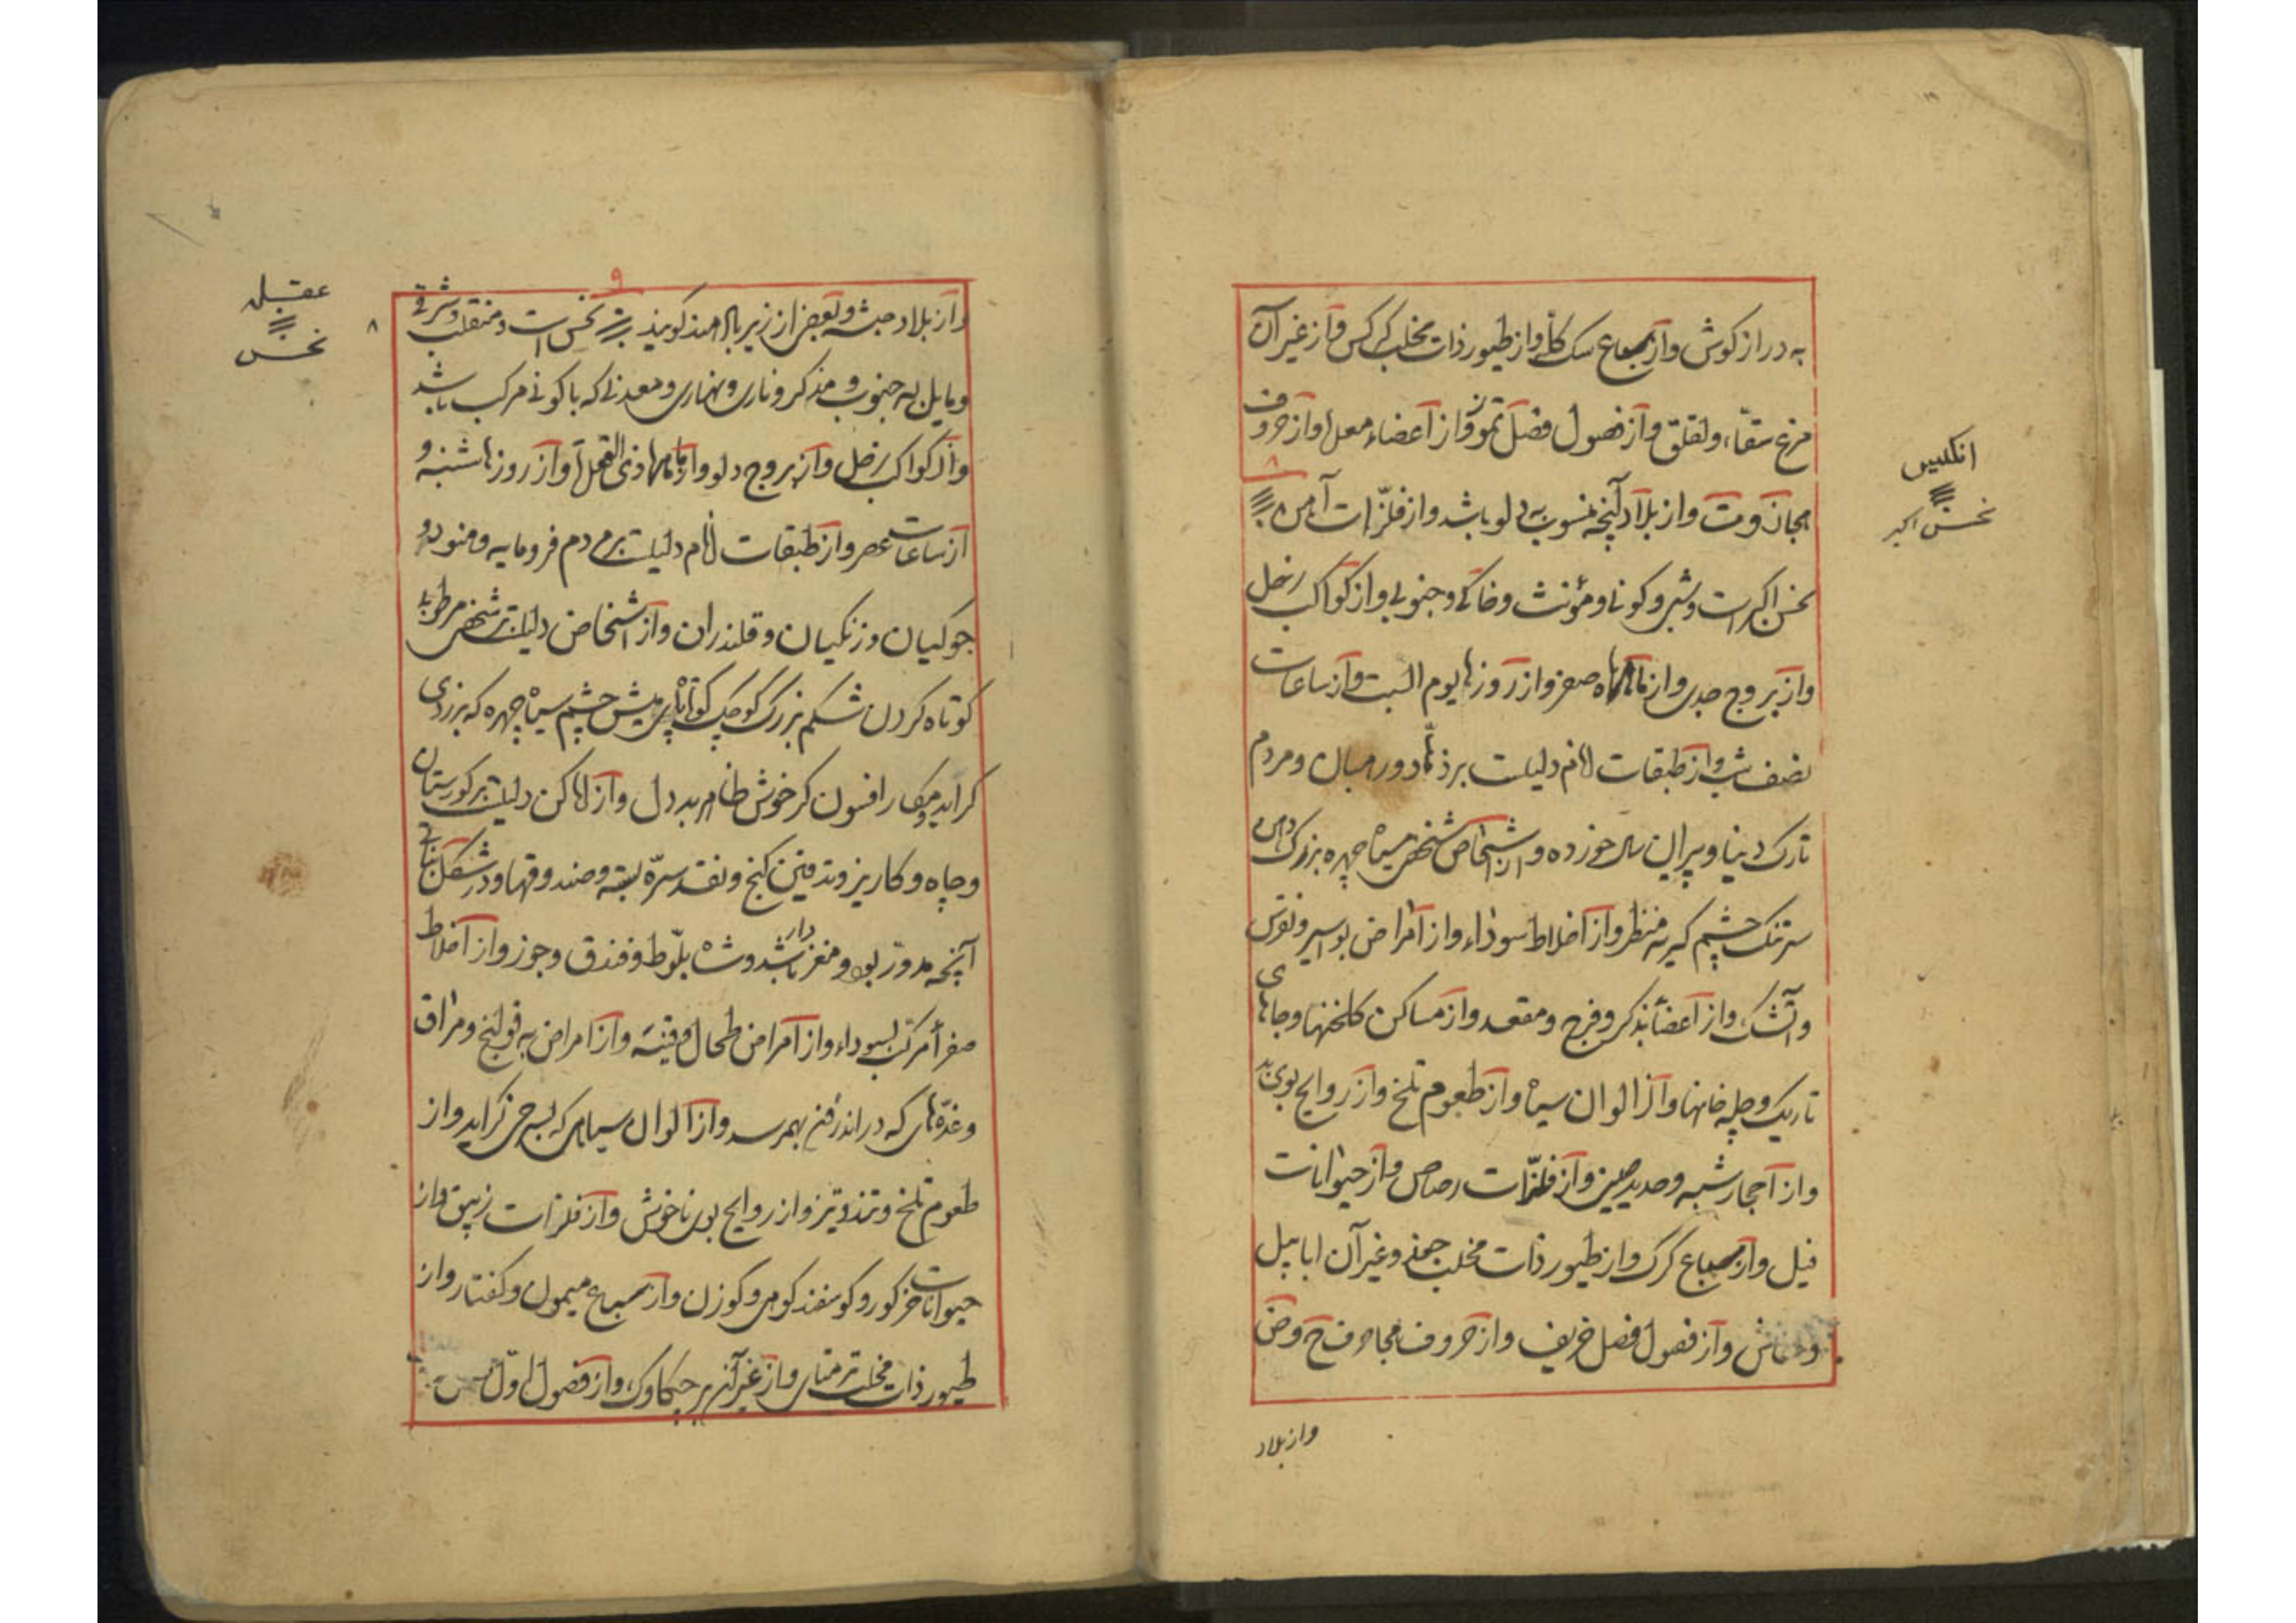 به دراز کوش واز سباع سک کله واز طیور ذات مخلب کرکس واز غیر آن
مرغ سقاء ولقلق واز فصول فصل تموز واز اعضاء معده واز حروف
مجان وت واز بلاد آنچه منسوب به دلو باشد واز فلزات آهن
نحس اکبر است و کونی ومؤنث وخاکی وجنوبی واز کواکب زحل
واز بروج جدی واز ماهها ماه صفر واز روزها یوم السبت واز ساعات
نصف شب واز طبقات انام دلیلست بر ومردم
تارک دنیا وپیران سال خورده واز اشخاص شخصی سیاه چهره بزرک دهن
سر تنک چشم کریه منظر واز اخلاط سوداء واز امراض بواسیر ونقرس
وآتشک واز اعضاء ذکر وفرج ومقعد واز مساکن کلخنها وجاهای
تاریک وچله خانها واز الوان سیاه واز طعوم تلخ واز روایح بوی بد
واز احجار شبه وحدید واز فلزات رصاص واز حیوانات
فیل واز سباع کرک واز طیور ذات مخلب جغد وغیر آن ابابیل
واز فصول فصل خریف واز حروف ح وض
واز بلاد
انکیس
نحس اکبر
۹
واز بلاد حبشه وبعضی از زیرباد هند کویند نحس است ومنقلب وشرقی
ومایل به جنوب ومذکر وناری ونهاری ومعدنی که با کونی مرکب باشد
واز کواکب زحل واز بروج دلو واز ماهها ذی القعده واز روزها شنبه و
از ساعات عصر واز طبقات انام دلیلست بر مردم فرومایه وهنود و
جوکیان وزنکیان وقلندران واز اشخاص دلیلست بر شخص
کوتاه کردن شکم بزرک کوچک چشم سیاه چهره که بزردی
کراید ومکار افسون کر خوش ظاهر بد دل واز اماکن دلیلست بر کورستان
وچاه وکاریز وتدفین کنج ونقد سره بسته وصندوقها ودر شکل نباتی
آنچه مدور بود ومغز دار باشد وشاه بلوط وفندق وجوز واز اخلاط
صفرا مرکب بسوداء واز امراض طحال واز امراض به قولنج ومراق
وغده‌ای که در اندرون بهمرسد واز الوان سیاهی که بسرخی کراید واز
طعوم تلخ وتند وتیز واز روایح بوی ناخوش واز فلزات زیبق واز
حیوانات خر کور وکوسفند کوهی وکوزن واز سباع میمون وکفتار واز
طیور ذات مخلب واز غیر آن چکاوک واز فصول اول
عقله
نحس
۸